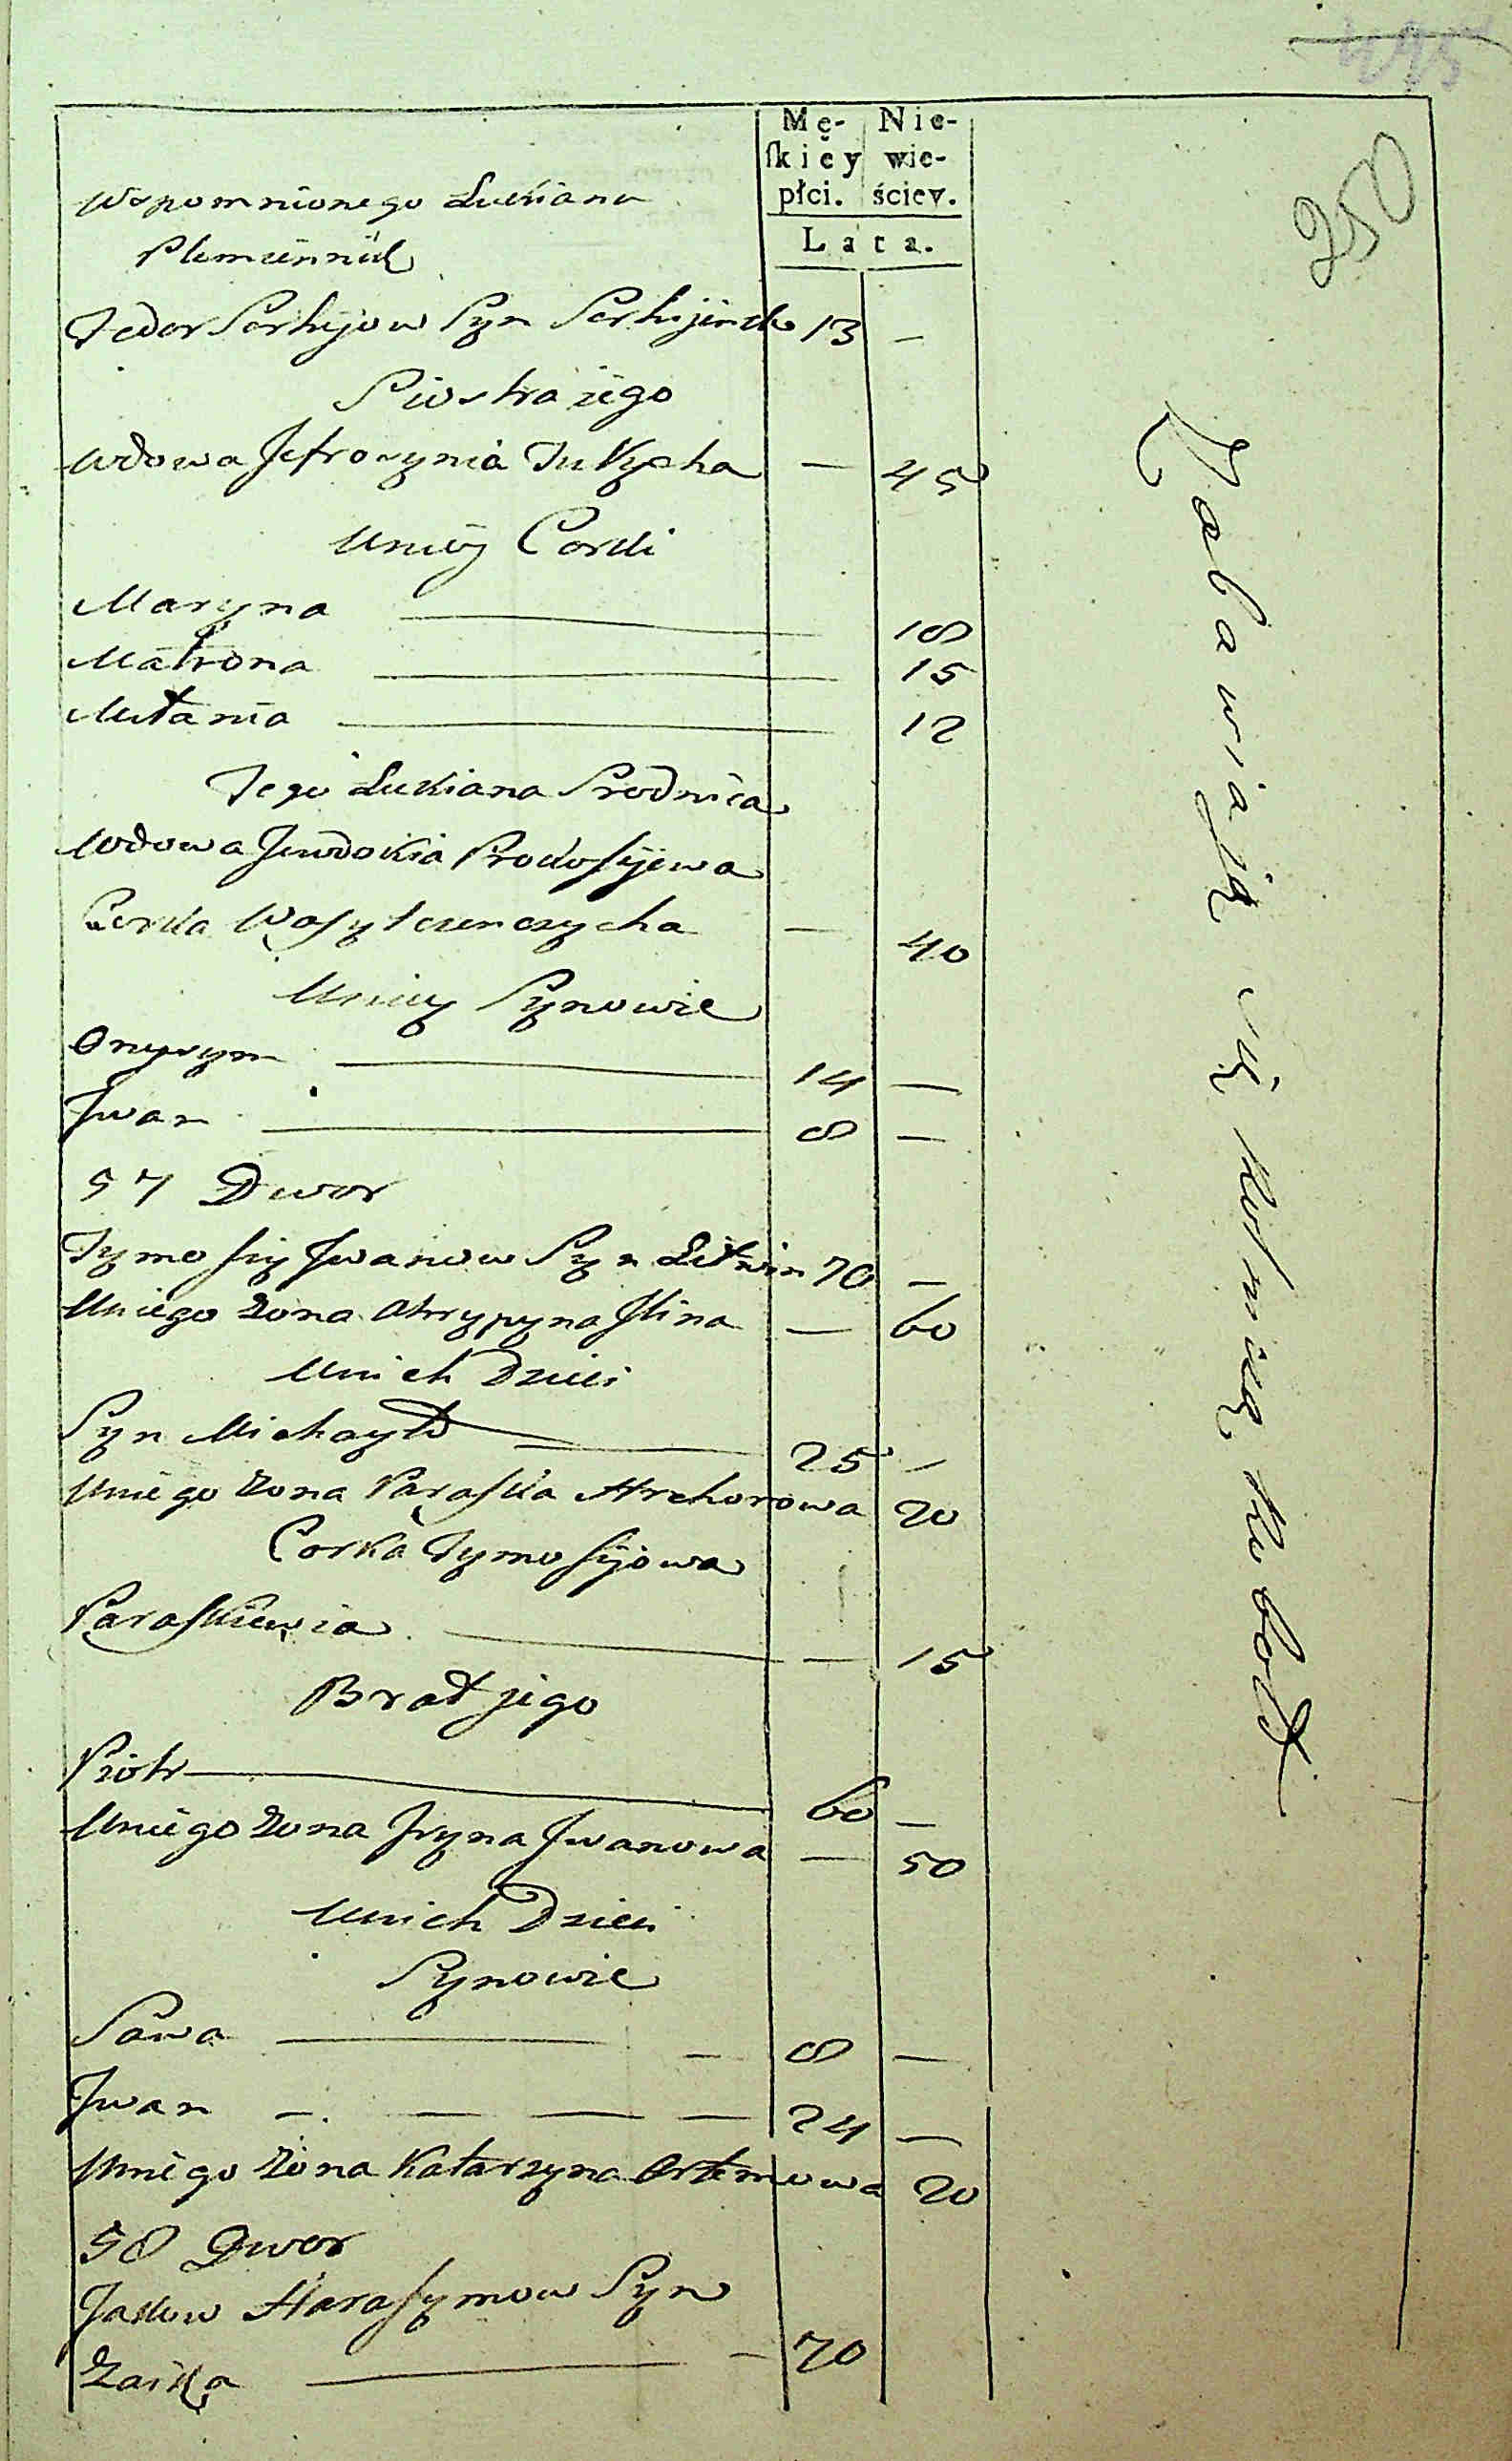 250
Mę- Nie-
skiey wie-
płci. ściey.
Lata.
Wspomnionego Łukiana
Plemiennik
Fedor Serhyow Syn Serhijenko 13 —
Siostra iego
Wdowa Jefrosynia — 45
Uniey Corki
Maryna — 18
Matrona — 15
Mełania — 12
Tego Łukiana Srodnica
Wdowa Jewdokia
Corka Wasylczenczycha — 40
Uniey Synowie
Onysym — 14 —
Jwan — 8 —
57 Dwor
Tymofiy Jwanow Syn Litwin 70 —
Uniego Zona Ahrypyna Jlina — 60
Unich Dzieci
Syn Michayło — 25 —
Uniego Zona Paraska Hrehorowa 20
Corka Tymofijowa
Paraskiewia — 15
Brat jego
Piotr — 60 —
Uniego Zona Jryna Jwanowa — 50
Unich Dzieci
Synowie
Sawa — 8 —
Jwan — 24 —
Uniego Zona Katarzyna Artemowa 20
58 Dwor
Jakow Harasymow Syn
Zaika — 70
Zabawiaią się Rolniczą Robotą